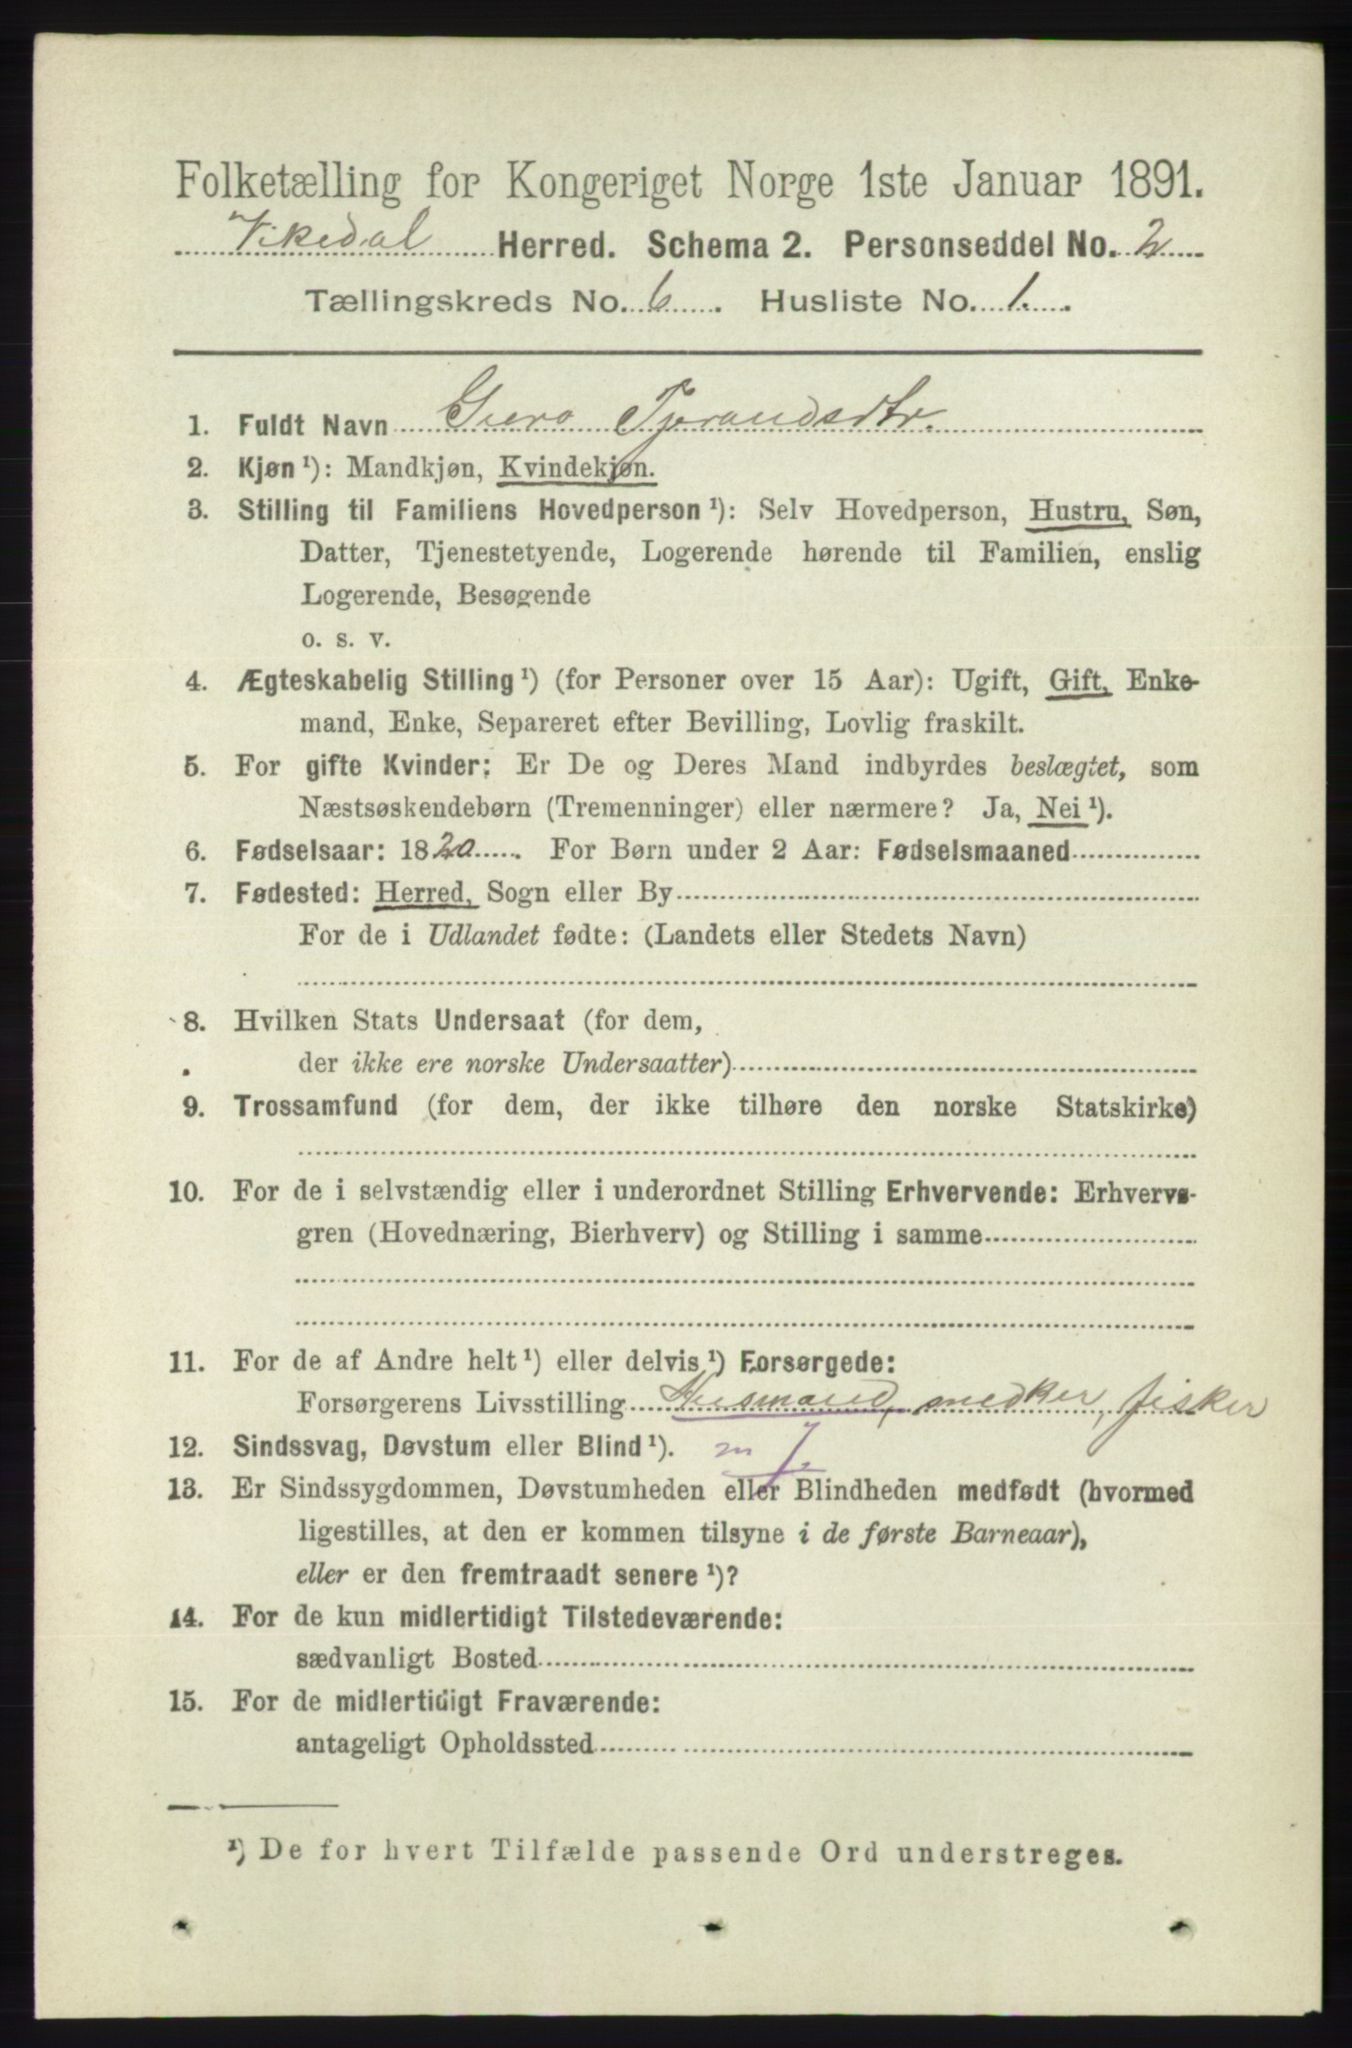 Folketælling for Kongeriget Norge 1ste Januar 1891.
Vikedal Herred. Schema 2. Personseddel No. 2
Tællingskreds No. 6. Husliste No. 1.
1. Fuldt Navn Guro Tjerandsdtr.
2. Kjøn ¹): Mandkjøn, Kvindekjøn.
3. Stilling til Familiens Hovedperson ¹): Selv Hovedperson, Hustru, Søn,
Datter, Tjenestetyende, Logerende hørende til Familien, enslig
Logerende, Besøgende
o. s. v.
4. Ægteskabelig Stilling ¹) (for Personer over 15 Aar): Ugift, Gift, Enke-
mand, Enke, Separeret efter Bevilling, Lovlig fraskilt.
5. For gifte Kvinder: Er De og Deres Mand indbyrdes beslægtet, som
Næstsøskendebørn (Tremenninger) eller nærmere? Ja, Nei ¹).
6. Fødselsaar: 1820. For Børn under 2 Aar: Fødselsmaaned
7. Fødested: Herred, Sogn eller By
For de i Udlandet fødte: (Landets eller Stedets Navn)
8. Hvilken Stats Undersaat (for dem,
der ikke ere norske Undersaatter)
9. Trossamfund (for dem, der ikke tilhøre den norske Statskirke)
10. For de i selvstændig eller i underordnet Stilling Erhvervende: Erhvervs-
gren (Hovednæring, Bierhverv) og Stilling i samme
11. For de af Andre helt ¹) eller delvis ¹) Forsørgede:
Forsørgerens Livsstilling Husmand, medker, fisker
12. Sindssvag, Døvstum eller Blind ¹). m J.
13. Er Sindssygdommen, Døvstumheden eller Blindheden medfødt (hvormed
ligestilles, at den er kommen tilsyne i de første Barneaar),
eller er den fremtraadt senere ¹)?
14. For de kun midlertidigt Tilstedeværende:
sædvanligt Bosted
15. For de midlertidigt Fraværende:
antageligt Opholdssted
¹) De for hvert Tilfælde passende Ord understreges.